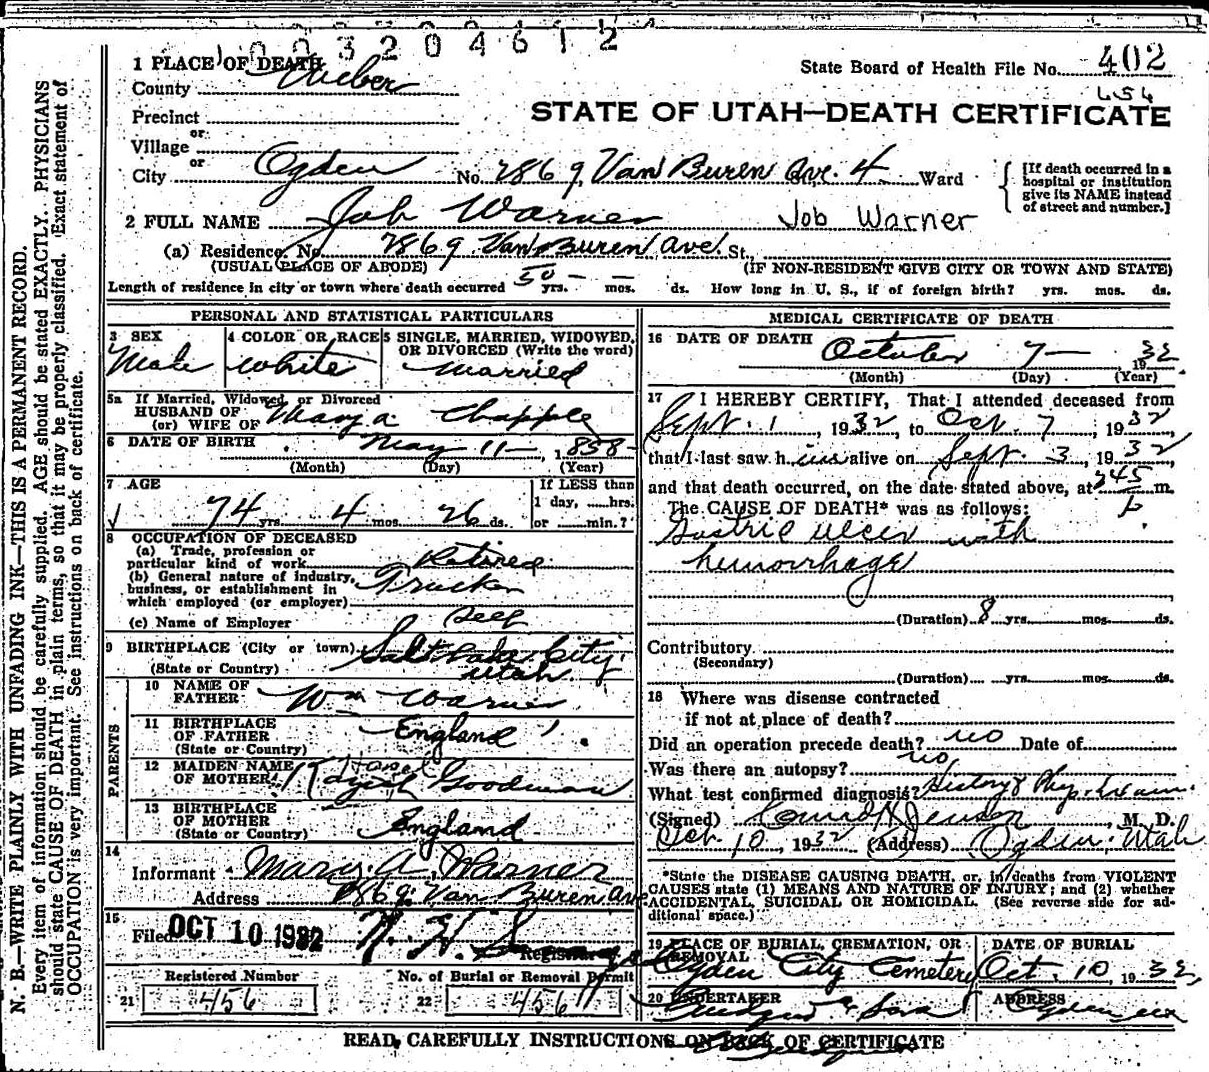 1003204612
1 PLACE OF DEATH
County Weber
State Board of Health File No. 402
Precinct
or
Village
or
City Ogden No. 2869 Van Buren Ave. 4 Ward
STATE OF UTAH—DEATH CERTIFICATE
[If death occurred in a
hospital or institution
give its NAME instead
of street and number.]
2 FULL NAME Job Warner Job Warner
(a) Residence. No. 2869 Van Buren Ave. St.,
(USUAL PLACE OF ABODE) (IF NON-RESIDENT GIVE CITY OR TOWN AND STATE)
Length of residence in city or town where death occurred 50 yrs. — mos. — ds. How long in U. S., if of foreign birth? yrs. mos. ds.
PERSONAL AND STATISTICAL PARTICULARS
3 SEX Male
4 COLOR OR RACE white
5 SINGLE, MARRIED, WIDOWED,
OR DIVORCED (Write the word)
married
5a If Married, Widowed, or Divorced
HUSBAND OF
(or) WIFE OF Mary A Chapple
6 DATE OF BIRTH May 11— , 1858-
(Month) (Day) (Year)
7 AGE
74 yrs. 4 mos. 26 ds.
If LESS than
1 day, ......hrs.
or ......min.?
8 OCCUPATION OF DECEASED
(a) Trade, profession or
particular kind of work Retired
(b) General nature of industry,
business, or establishment in
which employed (or employer) Trucker
(c) Name of Employer Self
9 BIRTHPLACE (City or town) Salt Lake City
(State or Country) Utah
PARENTS
10 NAME OF
FATHER Wm Warner
11 BIRTHPLACE
OF FATHER
(State or Country) England
12 MAIDEN NAME
OF MOTHER Goodman
13 BIRTHPLACE
OF MOTHER
(State or Country) England
14
Informant Mary A. Warner
Address 2869 Van Buren Ave
15
Filed OCT 10 1932
Registrar
Registered Number
21 456
No. of Burial or Removal Permit
22 456
MEDICAL CERTIFICATE OF DEATH
16 DATE OF DEATH October 7— 1932
(Month) (Day) (Year)
17 I HEREBY CERTIFY, That I attended deceased from
Sept. 1, 1932, to Oct. 7, 1932,
that I last saw him alive on Sept. 3, 1932,
and that death occurred, on the date stated above, at 245 m.
p
The CAUSE OF DEATH* was as follows:
Gastric ulcer with
hemorrhage
(Duration) 8 yrs. mos. ds.
Contributory
(Secondary)
(Duration) yrs. mos. ds.
18 Where was disease contracted
if not at place of death?
Did an operation precede death? no Date of
Was there an autopsy? no
What test confirmed diagnosis? History & Phy. Exam.
(Signed) Jenson, M. D.
Oct 10, 1932 (Address) Ogden, Utah
*State the DISEASE CAUSING DEATH, or, in deaths from VIOLENT
CAUSES state (1) MEANS AND NATURE OF INJURY; and (2) whether
ACCIDENTAL, SUICIDAL OR HOMICIDAL. (See reverse side for ad-
ditional space.)
19 PLACE OF BURIAL, CREMATION, OR
REMOVAL
Ogden City Cemetery
DATE OF BURIAL
Oct. 10, 1932,
20 UNDERTAKER
& Sons
ADDRESS
Ogden
READ CAREFULLY INSTRUCTIONS ON BACK OF CERTIFICATE
N. B.—WRITE PLAINLY WITH UNFADING INK—THIS IS A PERMANENT RECORD.
Every item of information should be carefully supplied. AGE should be stated EXACTLY. PHYSICIANS
should state CAUSE OF DEATH in plain terms, so that it may be properly classified. Exact statement of
OCCUPATION is very important. See instructions on back of certificate.